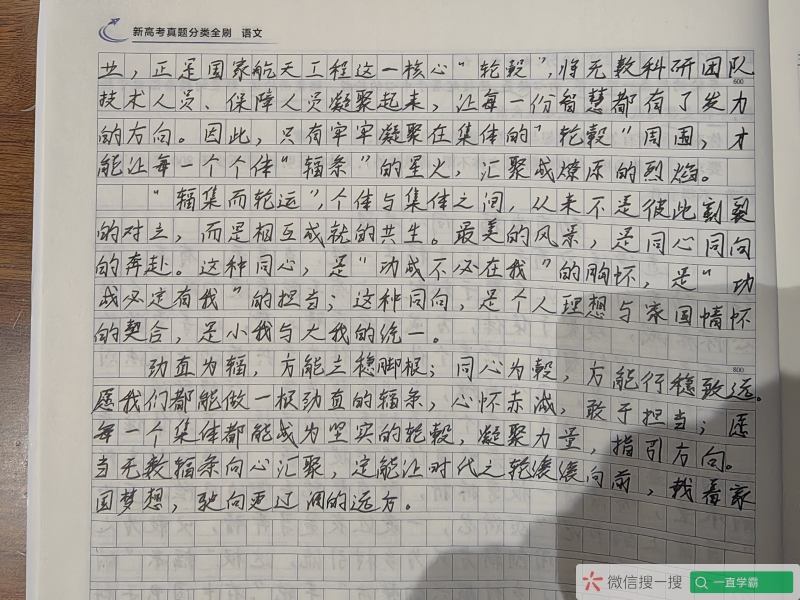 新高考真题分类全刷 语文
共，正是国家航天工程这一核心“轮毂”，将无数科研团队
600
技术人员、保障人员凝聚起来，让每一份智慧都有了发力
的方向。因此，只有牢牢凝聚在集体的“轮毂”周围，才
能让每一个个体“辐条”的星火，汇聚成燎原的烈焰。
“辐集而轮运”，个体与集体之间，从来不是彼此割裂
的对立，而是相互成就的共生。最美的风景，是同心同向
的奔赴。这种同心，是“功成不必在我”的胸怀，是“功
成必定有我”的担当；这种同向，是个人理想与家国情怀
的契合，是小我与大我的统一。
劲直为辐，方能立稳脚根；同心为毂，方能行稳致远。
800
愿我们都能做一根劲直的辐条，心怀赤诚，敢于担当；愿
每一个集体都能成为坚实的轮毂，凝聚力量，指引方向。
当无数辐条向心汇聚，定能让时代之轮滚滚向前，载着家
国梦想，驶向更辽阔的远方。
微信搜一搜
一直学霸